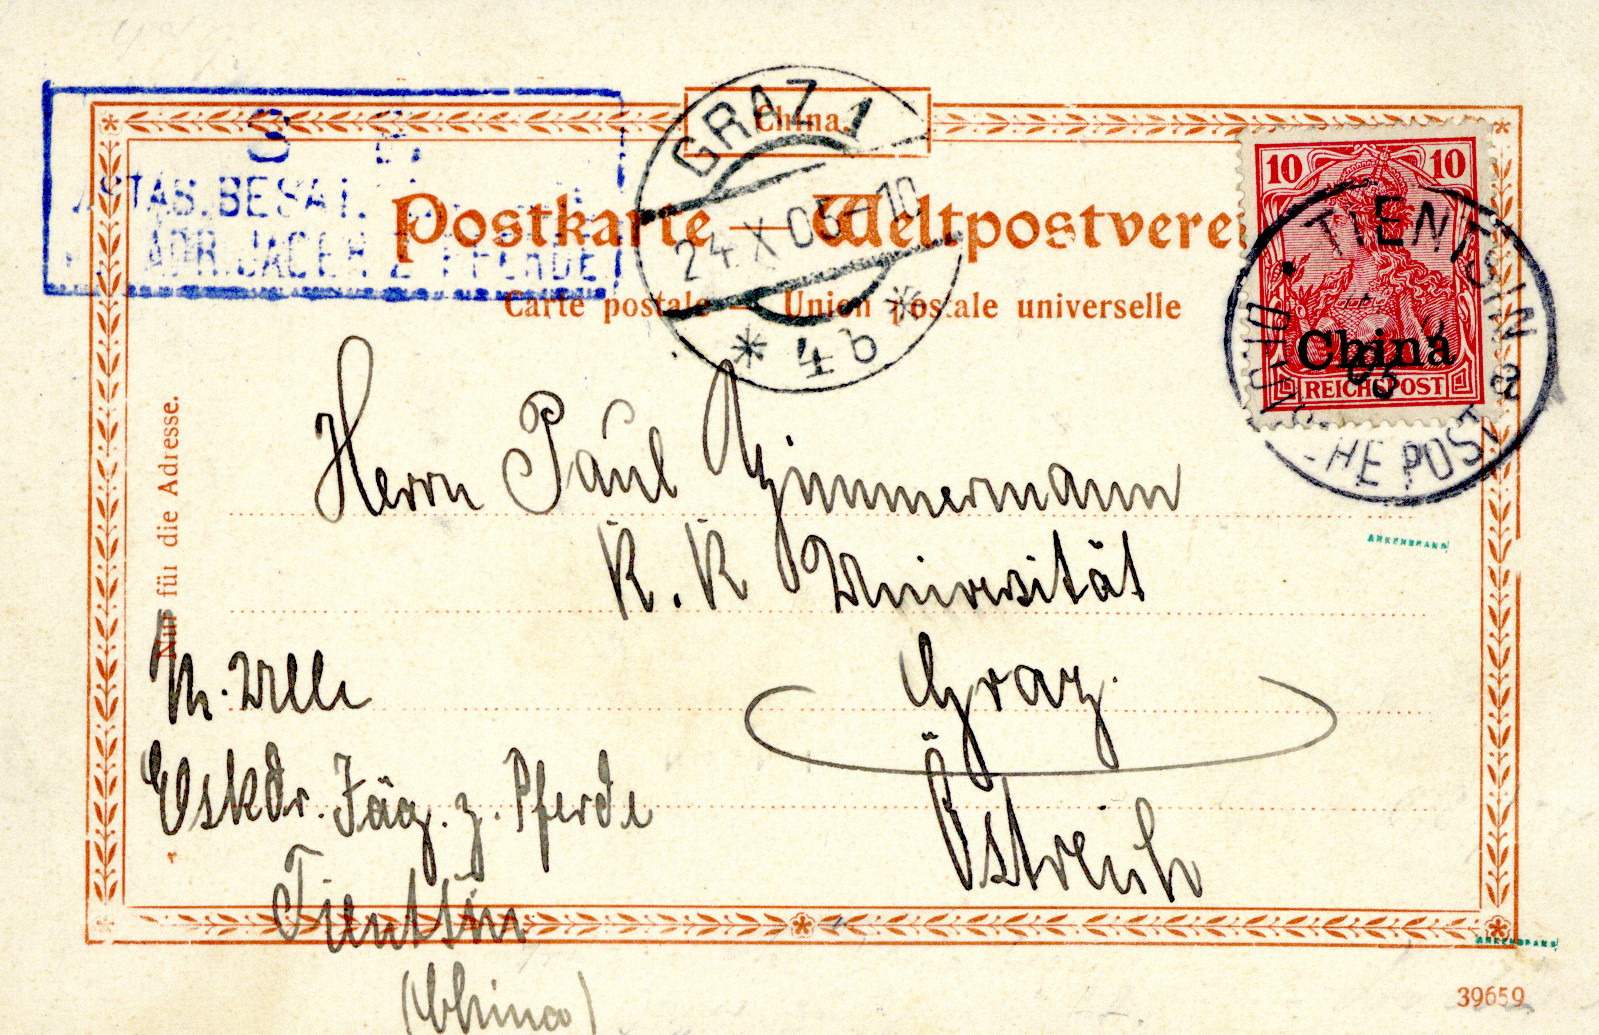 China
S. B.
Postkarte — Weltpostverei
Carte postale — Union postale universelle
Nur für die Adresse.
GRAZ 1
24.X.05-10
* 4b *
10 10
China
REICHSPOST
TIENTSIN
05
POST
Herrn Paul Zimmermann
K. K Universität
Graz.
Östreich
M. Welle
Eskdr. Jäg. z. Pferde
Tientsin
(China)
ANKENBRAND
ANKENBRAND
39659